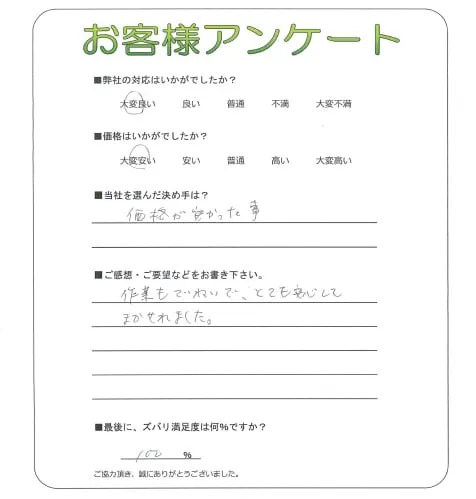 お客様アンケート
■弊社の対応はいかがでしたか？
大変良い 良い 普通 不満 大変不満
■価格はいかがでしたか？
大変安い 安い 普通 高い 大変高い
■当社を選んだ決め手は？
価格が安かった事
■ご感想・ご要望などをお書き下さい。
作業もていねいで、とても安心して
まかせれました。
■最後に、ズバリ満足度は何%ですか？
100 %
ご協力頂き、誠にありがとうございました。